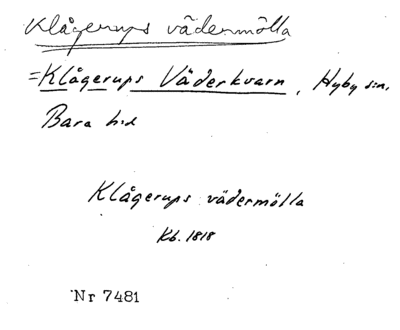 Klågerups vädermölla
=Klågerups Väderkvarn, Hyby s:n,
Bara h:d
Klågerups vädermölla
Kb. 1818
Nr 7481